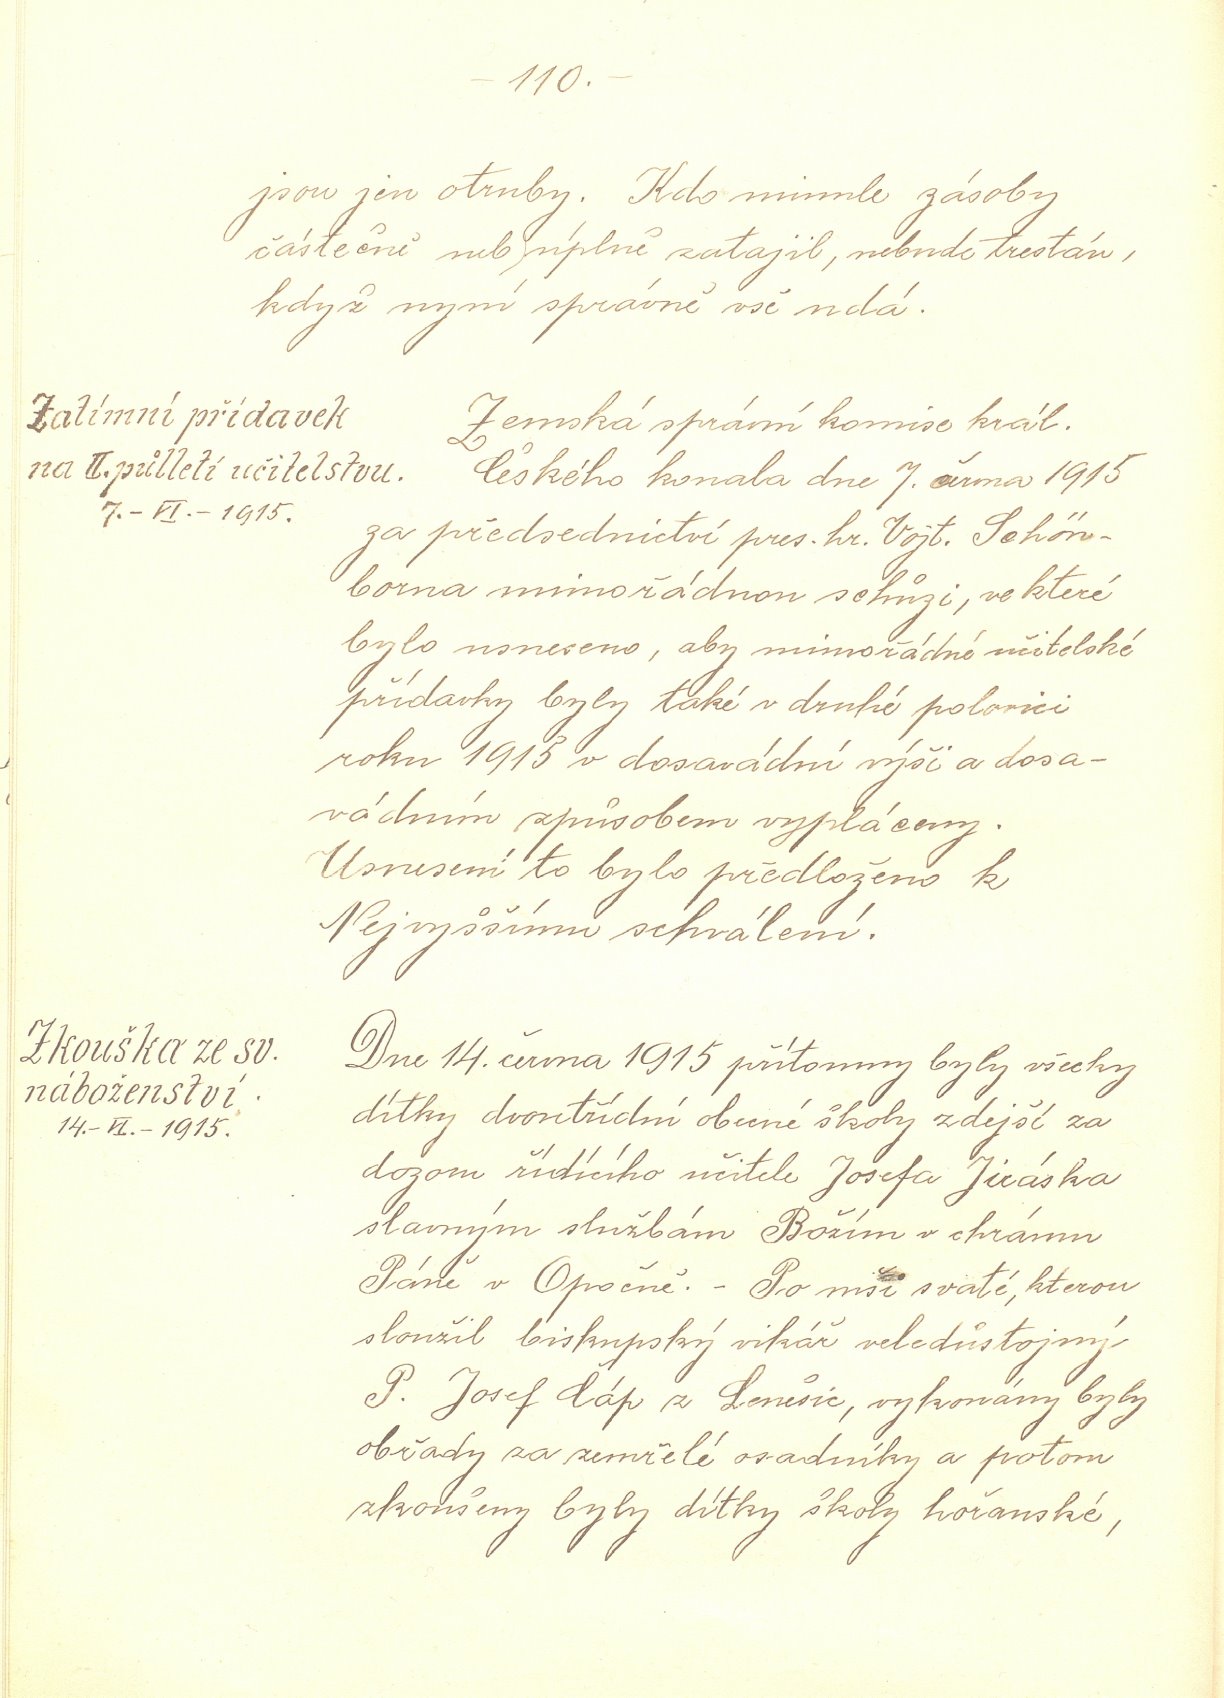 – 110. –
jsou jen otruby. Kdo minule zásoby
částečně neb úplně zatajil, nebude trestán,
když nyní správně vše udá.
Zatímní přídavek
na II. půlletí učitelstvu.
7. – VI. – 1915.
Zemská správní komise král.
Českého konala dne 7. června 1915
za předsednictví pres. hr. Vojt. Schön-
borna mimořádnou schůzi, ve které
bylo usneseno, aby mimořádné učitelské
přídavky byly také v druhé polovici
roku 1915 v dosavádní výši a dosa-
vádním způsobem vypláceny.
Usnesení to bylo předloženo k
Nejvyššímu schválení.
Zkouška ze sv.
náboženství.
14. – VI. – 1915.
Dne 14. června 1915 přítomny byly všecky
dítky dvoutřídní obecné školy zdejší za
dozoru řídícího učitele Josefa Jiráska
slavným službám Božím v chrámu
Páně v Opočně. – Po mši svaté, kterou
sloužil biskupský vikář veledůstojný
P. Josef Čáp z Lenešic, vykonány byly
obřady za zemřelé osadníky a potom
zkoušeny byly dítky školy hořanské,